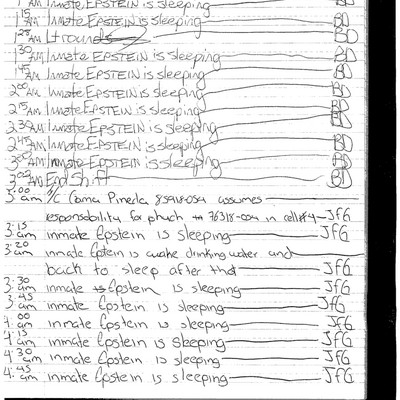 AM Inmate EPSTEIN is sleeping BD
1:15 AM Inmate EPSTEIN is sleeping BD
1:25 AM Lt rounds BD
1:30 AM Inmate EPSTEIN is sleeping BD
1:45 AM Inmate EPSTEIN is sleeping BD
2:00 AM Inmate EPSTEIN is sleeping BD
2:15 AM Inmate EPSTEIN is sleeping BD
2:30 AM Inmate EPSTEIN is sleeping BD
2:45 AM Inmate EPSTEIN is sleeping BD
3:00 AM Inmate EPSTEIN is sleeping BD
3:00 AM End Shift BD
3:00 am I/C Pineda 85918-054 assumes
responsibility for 76318-054 in cell#4 JfG
3:15 am inmate Epstein is sleeping JfG
3:20 am inmate Epstein is awake drinking water and
back to sleep after that JfG
3:30 am inmate Epstein is sleeping JfG
3:45 am inmate Epstein is sleeping JfG
4:00 am inmate Epstein is sleeping JfG
4:15 am inmate Epstein is sleeping JfG
4:30 am inmate Epstein is sleeping JfG
4:45 am inmate Epstein is sleeping JfG